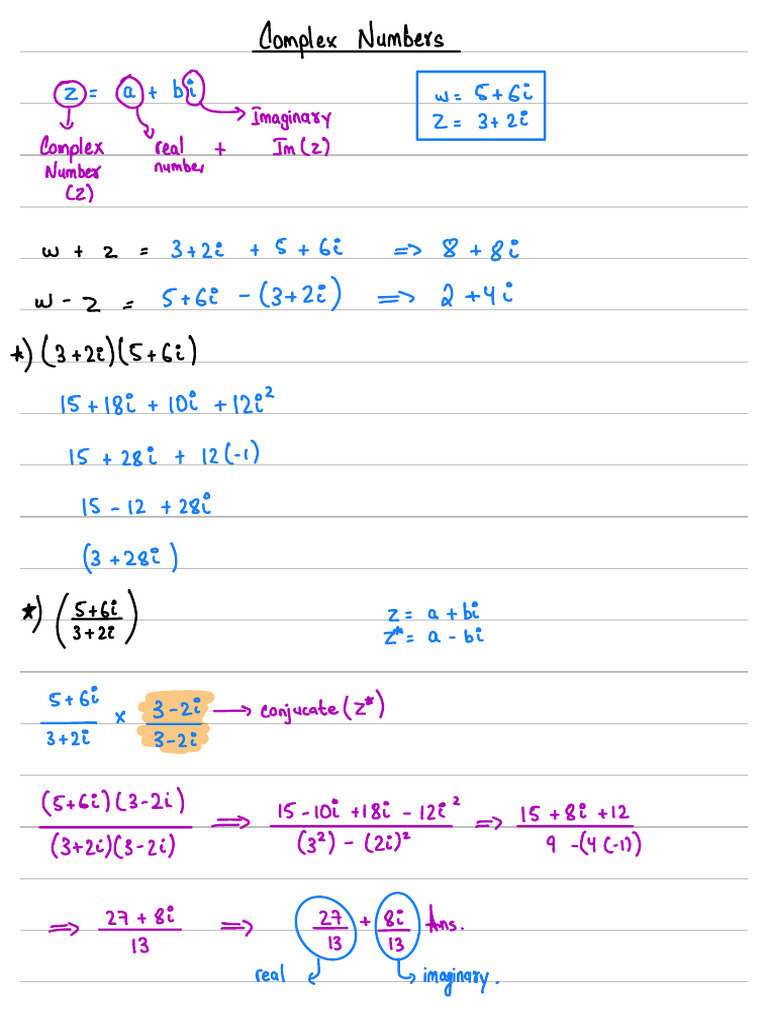 Complex Numbers
z = a + bi
w = 5+6i
z = 3+2i
Imaginary
Complex real + Im(z)
Number number
(z)
w + z = 3+2i + 5 + 6i => 8 + 8i
w - z = 5+6i - (3+2i) => 2 + 4i
*) (3+2i)(5+6i)
15 + 18i + 10i + 12i²
15 + 28i + 12(-1)
15 - 12 + 28i
(3 + 28i)
*) (5+6i / 3+2i)
z = a + bi
z* = a - bi
5+6i / 3+2i x 3-2i / 3-2i → conjucate (z*)
(5+6i)(3-2i) / (3+2i)(3-2i) => 15 - 10i + 18i - 12i² / (3²) - (2i)² => 15 + 8i + 12 / 9 - (4(-1)
=> 27 + 8i / 13 => 27/13 + 8i/13 Ans.
real imaginary.